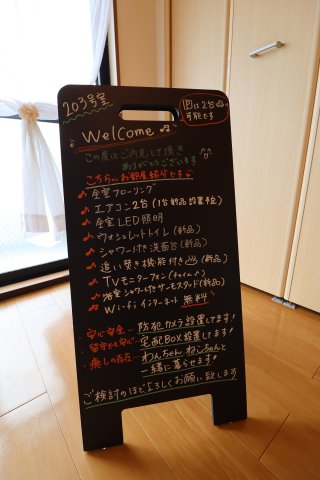 203号室
Pは2台
可能です
Welcome
この度はご内見して頂き
ありがとうございます
こちらのお部屋紹介です
全室フローリング
エアコン2台(1台新品設置予定)
全室LED照明
ウォシュレットトイレ(新品)
シャワー付き洗面台(新品)
追い焚き機能付き(新品)
TVモニターフォン(チャイム)
浴室シャワー付きサーモスタンド(新品)
Wi-fiインターネット無料
・安心安全…防犯カメラ設置してます!
・留守でも安心…宅配BOX設置してます!
・癒しの存在…わんちゃんねこちゃんと
一緒に暮らせます!
ご検討のほどよろしくお願い致します